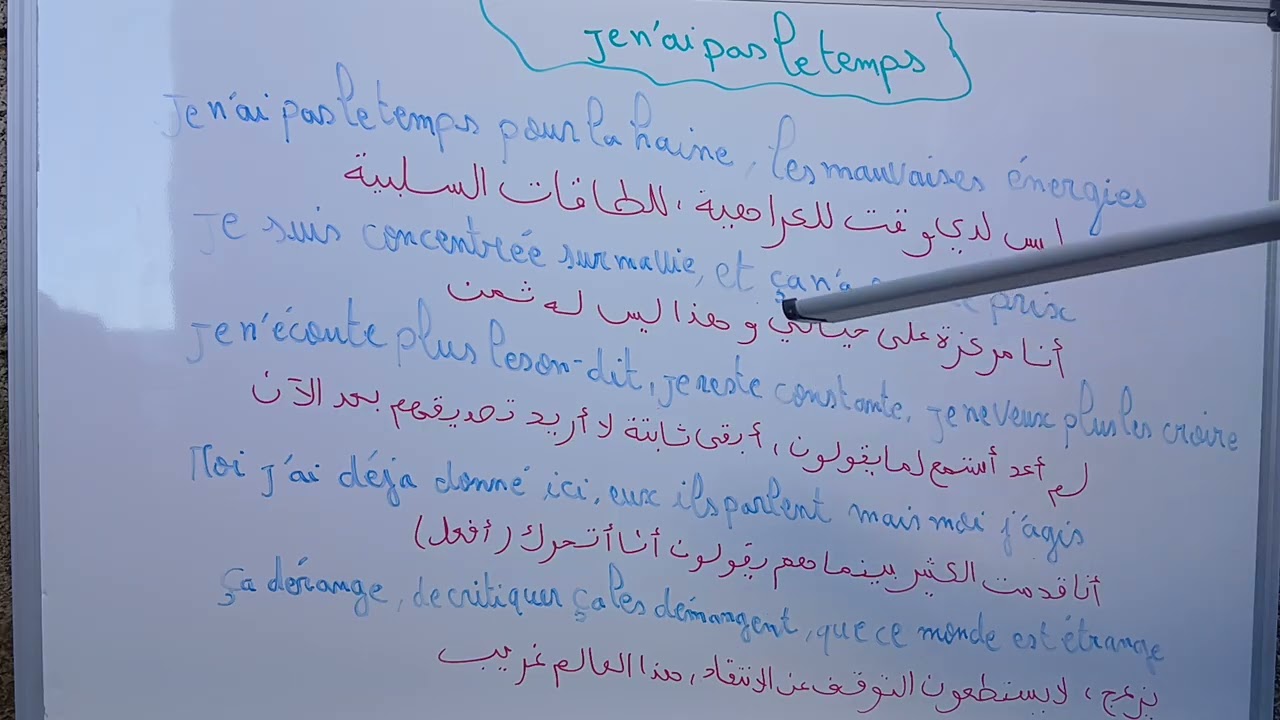 Je n'ai pas le temps
Je n'ai pas le temps pour la haine, les mauvaises énergies
ليس لدي وقت للكراهية، للطاقات السلبية
Je suis concentrée sur ma vie, et ça n'a prix
أنا مركزة على حياتي و هذا ليس له ثمن
Je n'écoute plus les on-dit, je reste constante, je ne veux plus les croire
لم أعد أستمع لما يقولون، أبقى ثابتة لا أريد تصديقهم بعد الآن
Moi j'ai déja donné ici, eux ils parlent mais moi j'agis
أنا قدمت الكثير بينما هم يقولون أنا أتحرك (أفعل)
ça dérange, de critiquer ça les démangent, que ce monde est étrange
يزعج، لا يستطعون التوقف عن الانتقاد، هذا العالم غريب